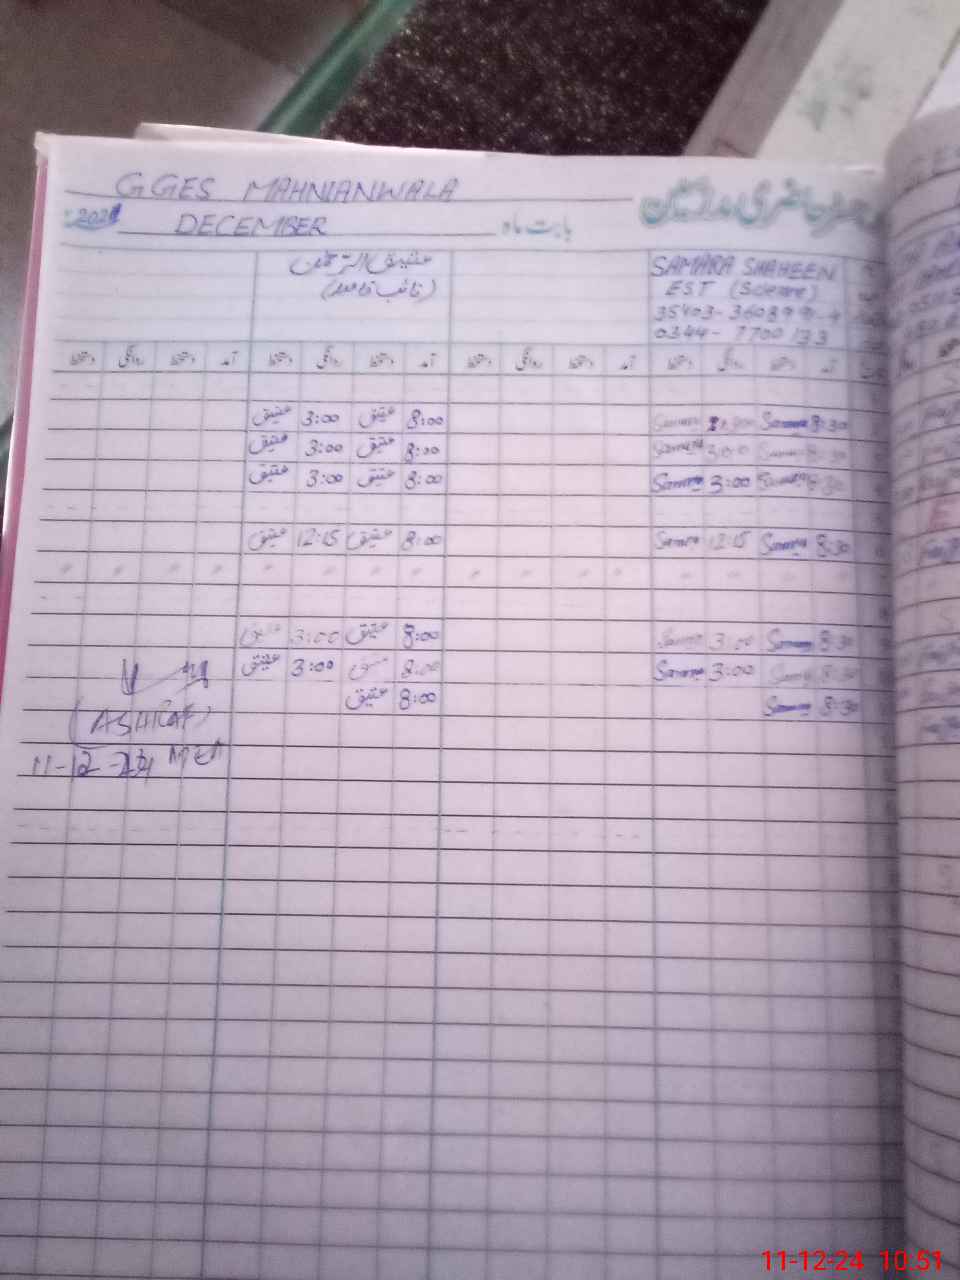 GGES MAHNIANWALA
DECEMBER بابت ماہ
عتیق الرحمٰن
(نائب قاصد)
SAMARA SHAHEEN
EST (Science)
0344- 7700133
دستخط روانگی دستخط آمد دستخط روانگی دستخط آمد دستخط روانگی دستخط آمد دستخط روانگی دستخط آمد
عتیق 3:00 عتیق 8:00 Samara 8:30
عتیق 3:00 عتیق 8:00 Samara 3:00 8:30
عتیق 3:00 عتیق 8:00 Samara 3:00 Samara 8:30
عتیق 12:15 عتیق 8:00 Samara 12:15 Samara 8:30
عتیق 3:00 عتیق 8:00 Samara 3:00 Samara 8:30
عتیق 3:00 عتیق 8:00 Samara 3:00 Samara 8:30
عتیق 8:00 Samara 8:30
(ASHRAF)
11-12-24 MEA
11-12-24 10:51